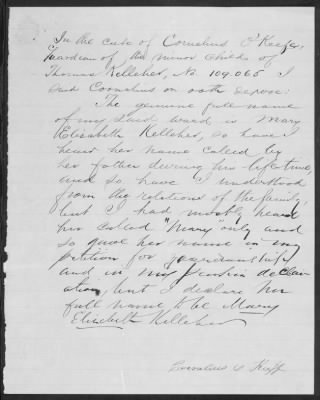 In the case of Cornelius O'Keefe,
Guardian of the minor child of
Thomas Kelleher, No. 109.065 I
said Cornelius on oath depose:
The genuine full name
of my said ward is Mary
Elizabeth Kelleher, so have I
heard her name called by
her father during his life time,
and so have I understood
from the relations of the family,
but I had mostly heard
her called "Mary" only and
so gave her name in my
petition for guardianship
and in my Pension declar
ation, but I declare her
full name to be Mary
Elizabeth Kelleher
Cornelius O Keeff